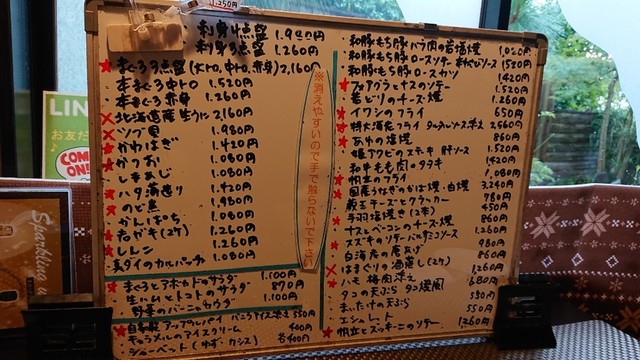 1,250円
刺身4点盛 1.980円
刺身3点盛 1.260円
★まぐろ3点盛(大トロ,中トロ,赤身)2,160円
本まぐろ中トロ 1.520円
本まぐろ赤身 1.260円
北海道産生うに 2,160円
ツブ貝 1.980円
かわはぎ 1.420円
かつお 1.080円
しまあじ 1.080円
★ハタ湯造り 1.420円
★のど黒 1.980円
かんぱち 1.080円
★岩がき(2ケ) 1.260円
★しめサバ
真ダイのカルパッチョ 1.080円
★まぐろとアボカドのサラダ 1.100円
生ハムとトマトのサラダ 890円
野菜のバーニャカウダ 1.100円
★自家製アップルパイ バニラアイス添え 550円
キャラメルのアイスクリーム 400円
シャーベット(ゆず・カシス) 各400円
※消えやすいので手で触らないで下さい
和豚もち豚バラ肉の岩塩焼 1,020円
和豚もち豚ロースソテー
和豚もち豚ロースカツ 1420円
★フォアグラとナスのソテー 1.520円
若どりのチーズ焼 1.260円
★イワシのフライ 650円
★特大海老フライ タルタルソース添え 2,560円
★あゆの塩焼 860円
1,520円
和牛もも肉のタタキ 1420円
★帆立のフライ 1,080円
★国産うなぎのかば焼・白焼 3,240円
780円
手羽塩焼き(2本) 450円
★ナスとベーコンのチーズ焼 860円
980円
白海老の唐あげ 860円
はまぐりの酒蒸し(2ケ) 1,260円
★ハモ 梅肉添え 680円
タコの天ぷら
まいたけ天ぷら 550円
エシャレット
★帆立とズッキーニのソテー 1,260円
LIN
お友だ
COME ON!
Sparkling